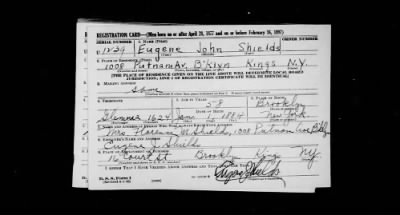 REGISTRATION CARD—(Men born on or after April 28, 1877 and on or before February 16, 1897)
SERIAL NUMBER 1. NAME (Print) ORDER NUMBER
U 1239 Eugene John Shields
2. PLACE OF RESIDENCE (Print)
1008 Putnam Av. B'klyn Kings N.Y.
[THE PLACE OF RESIDENCE GIVEN ON THE LINE ABOVE WILL DETERMINE LOCAL BOARD
JURISDICTION; LINE 2 OF REGISTRATION CERTIFICATE WILL BE IDENTICAL]
3. MAILING ADDRESS
Same
4. TELEPHONE 5. AGE IN YEARS 6. PLACE OF BIRTH
58 Brooklyn
Glenmore 1624 Jan 1, 1884 New York
7. NAME AND ADDRESS OF PERSON WHO WILL ALWAYS KNOW YOUR ADDRESS
Mrs Florence M. Shields, 1008 Putnam Ave
8. EMPLOYER'S NAME AND ADDRESS
Eugene J. Shields
9. PLACE OF EMPLOYMENT OR BUSINESS
16 Court St Brooklyn Kings NY
I AFFIRM THAT I HAVE VERIFIED ABOVE ANSWERS AND THAT THEY ARE TRUE.
D. S. S. Form 1